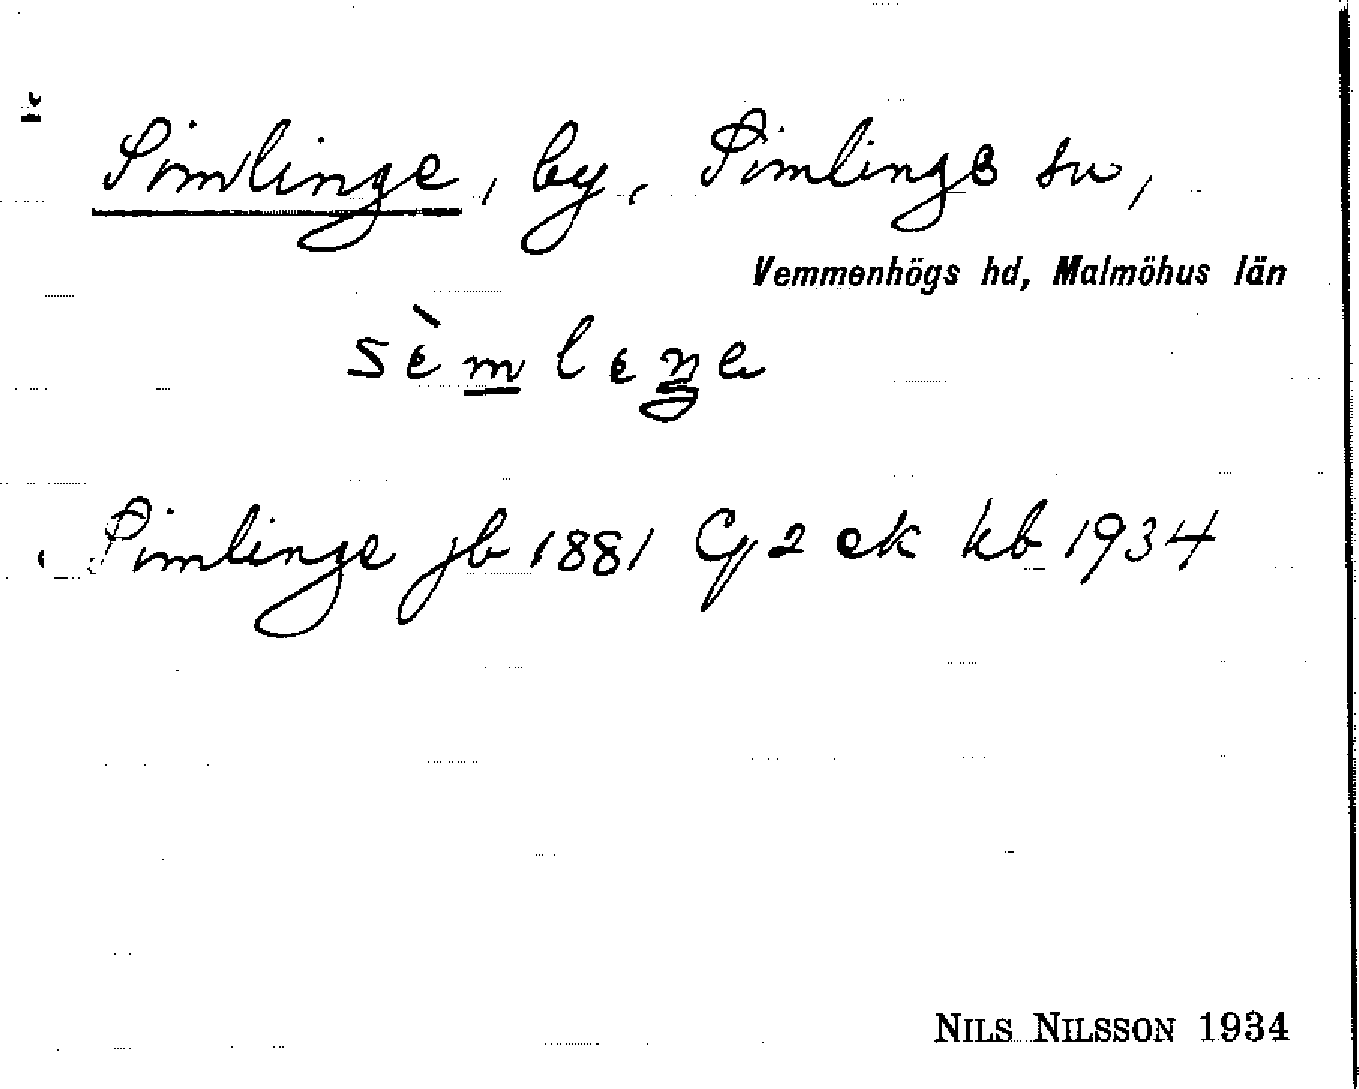 Simlinge, by, Simlinge sn,
Vemmenhögs hd, Malmöhus län
Simlinge jb 1881 Cg 2 ek kb 1934
NILS NILSSON 1934